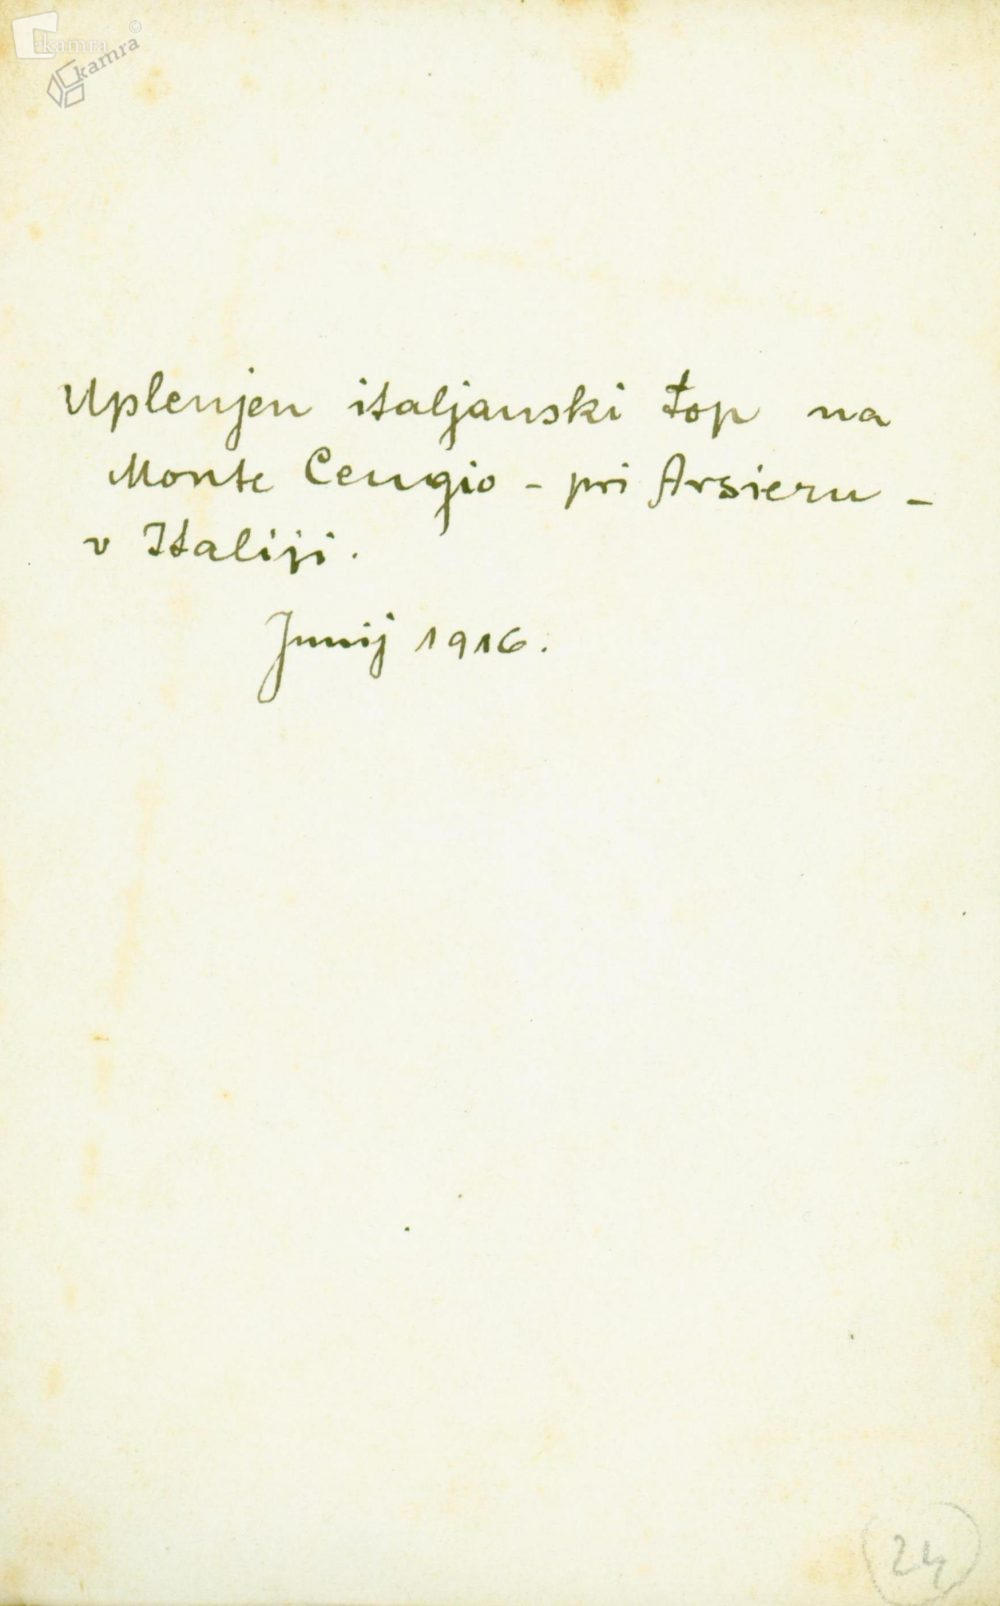 kamra
kamra
©
Uplenjen italjanski top na
Monte Cengio - pri Arsieru -
v Italiji.
Junij 1916.
24